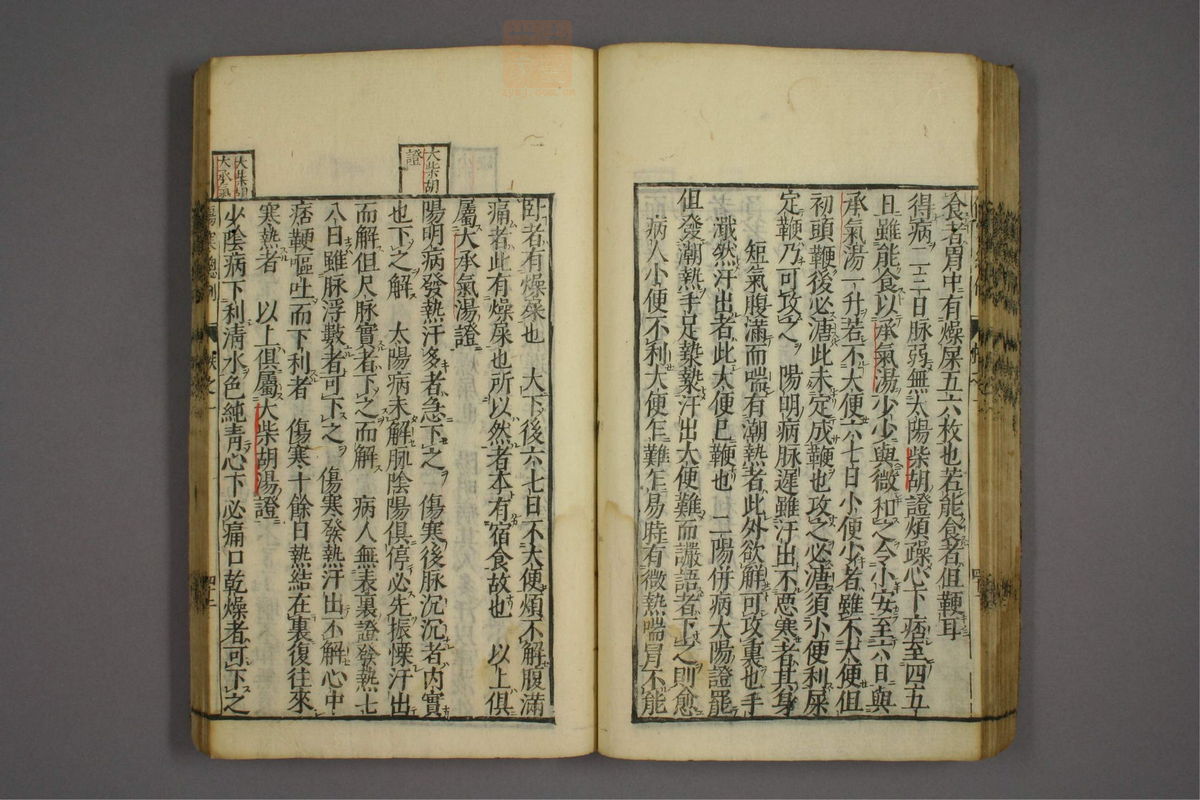 食者胃中有燥屎五六枚也若能食者但鞕耳
得病二三日脉弱無太陽柴胡證煩躁心下痞至四五
日雖能食以承氣湯少少與微和之令小安至六日與
承氣湯一升若不大便六七日小便少者雖不大便但
初頭鞕後必溏此未定成鞕也攻之必溏須小便利屎
定鞕乃可攻之　陽明病脉遲雖汗出不惡寒者其身
短氣腹滿而喘有潮熱者此外欲解可攻裏也手
濈然汗出者此大便已鞕也　二陽併病太陽證罷
但發潮熱手足漐漐汗出大便難而讝語者下之則愈
病人小便不利大便乍難乍易時有微熱喘冒不能
大柴胡
證
大柴胡
大承氣
臥者有燥屎也　大下後六七日不大便煩不解腹滿
痛者此有燥屎也所以然者本有宿食故也　以上俱
屬大承氣湯證
陽明病發熱汗多者急下之　傷寒後脉沉沉者內實
也下之解　太陽病未解脉陰陽俱停必先振慄汗出
而解但尺脉實者下之而解　病人無表裏證發熱七
八日雖脉浮數者可下之　傷寒發熱汗出不解心中
痞鞕嘔吐而下利者　傷寒十餘日熱結在裏復往來
寒熱者　以上俱屬大柴胡湯證
少陰病下利淸水色純靑心下必痛口乾燥者可下之
傷寒總例
四十二